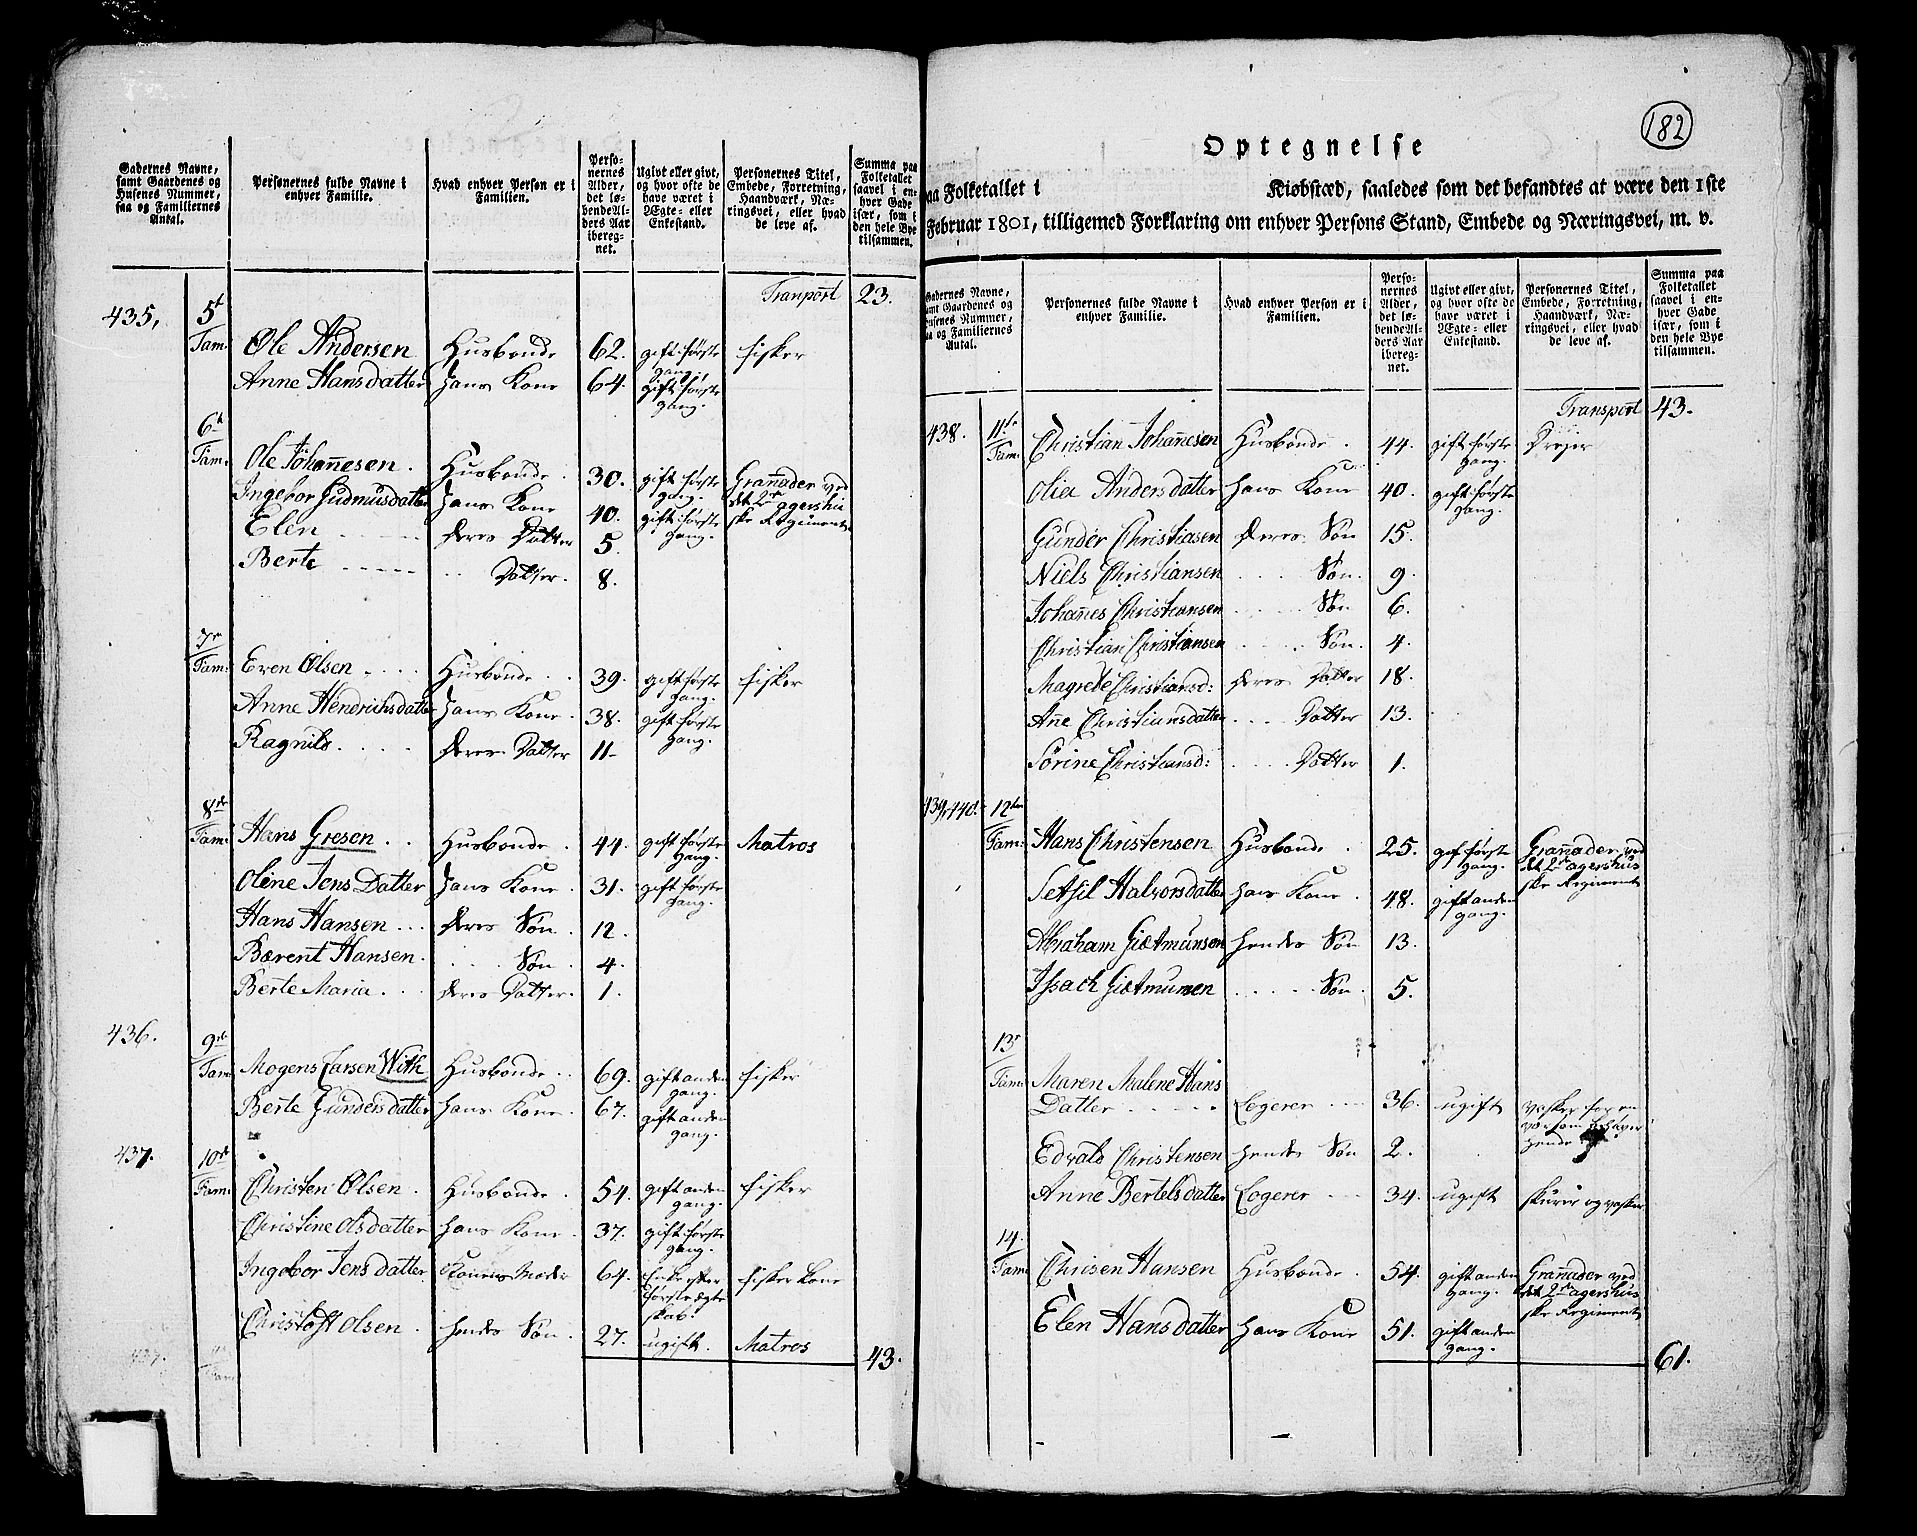 Gadernes Navne,
samt Gaardenes og
Husenes Nummer,
saa og Familiernes
Antal.
Personernes fulde Navne i
enhver Familie.
Hvad enhver Person er i
Familien.
Perso-
nernes
Alder,
det lø-
bende Al-
ders Aar
iberegnet.
Ugivt eller givt,
og hvor ofte de
have været i
Ægte- eller
Enkestand.
Personernes Titel,
Embede, Forretning,
Haandværk, Næ-
ringsvei, eller hvad
de leve af.
Summa paa
Folketallet
saavel i en-
hver Gade
især, som i
den hele Bye
tilsammen.
Tranport 23.
435, 5t
Fam: Ole Andersen Husbonde 62. gift første gang. fisker
Anne Hansdatter hans Kone 64. gift første gang.
6t
Fam: Ole Johannesen. Husbonde. 30. gift første gang. Granader ved
Ingebor Gudmusdatter hans Kone 40. gift første gang. det 2de agershu
Elen deres Datter 5. ske Regiment
Berte Datter. 8.
7n
Fam: Even Olsen Husbonde 39. gift første gang. fisker
Anne Hendrichsdatter hans Kone. 38. gift første gang.
Ragnild deres Datter 11
8de
Fam: Hans Gresen Husbonde. 44. gift første gang. Matros
Oline Jens Datter hans Kone. 31. gift første gang.
Hans Hansen deres Søn. 12.
Bærent Hansen. Søn. 4.
Berte Maria deres Datter. 1.
436. 9de
Fam: Mogens Larsen With Husbonde 69. gift anden gang. fisker
Berte Gunders datter hans Kone. 67. gift anden gang.
437. 10de
Fam: Christen Olsen. Husbonde. 54. gift anden gang. fisker
Christine Olsdatter hans Kone. 37. gift første gang.
Ingebor Jens datter Konens Moder 64. Enke efter første ægteskab. fisker kone
Christoft Olsen. hendes Søn. 27. ugift. Matros
43.
182
Optegnelse
paa Folketallet i Kiøbstæd, saaledes som det befandtes at være den 1ste
Februar 1801, tilligemed Forklaring om enhver Persons Stand, Embede og Næringsvei, m. v.
Gadernes Navne,
samt Gaardenes og
Husenes Nummer,
saa og Familiernes
Antal.
Personernes fulde Navne i
enhver Familie.
Hvad enhver Person er i
Familien.
Perso-
nernes
Alder,
det lø-
bende Al-
ders Aar
iberegnet.
Ugivt eller givt,
og hvor ofte de
have været i
Ægte- eller
Enkestand.
Personernes Titel,
Embede, Forretning,
Haandværk, Næ-
ringsvei, eller hvad
de leve af.
Summa paa
Folketallet
saavel i en-
hver Gade
især, som i
den hele Bye
tilsammen.
Transport 43.
438. 11te
Fam: Christian Johannesen Husbonde. 44. gift første gang. Drejer
Olia Anders datter hans Kone 40. gift første gang.
Gunder Christiasen deres Søn 15.
Niels Christiansen Søn. 9.
Johanes Christiansen Søn 6.
Christian Christiansen Søn. 4.
Magrete Christiansd: deres Datter 18.
Ane Christiansdatter Datter 13.
Sørine Christiansd: Datter 1.
439, 440. 12te
Fam: Hans Christensen Husbonde. 25. gift første gang. Granader ved
det 2de agershus
ske Regiment
Setsil Halvorsdatter hans Kone. 48. gift anden gang.
Abraham Giætmunsen hendes Søn 13.
Issach Giætmunsen Søn. 5.
13t
Fam: Maren Malene Hans
Datter Logerer 36. ugift vasker for en
hende
Edvald Christensen hendes Søn 2.
Anne Bertels datter Logerer 34. ugift skurer og vasker
14.
Fam: Chrisen Hansen Husbonde 54. gift anden gang. Granader ved
det 2de agershus
ske Regiment
Elen Hans datter hans Kone 51. gift anden gang.
61.